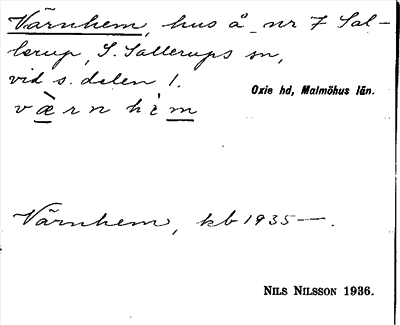 Värnhem, hus å nr 7 Sal-
lerup, S. Sallerups sn,
vid s. delen 1.
Oxie hd, Malmöhus län.
v æ̀ r n h è m
Värnhem, kb 1935—.
NILS NILSSON 1936.